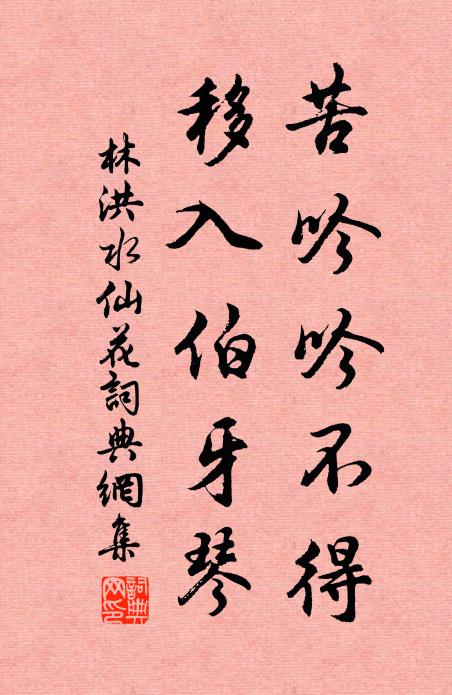 苦吟吟不得
移入伯牙琴
林洪水仙花詞典網集
詞典網印